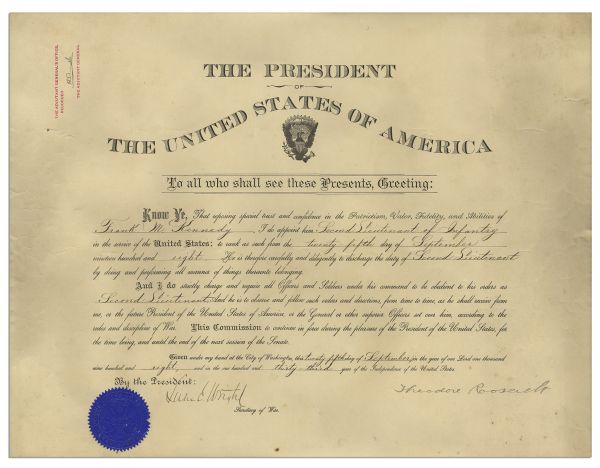 THE ADJUTANT GENERAL'S OFFICE,
RECORDED
THE ADJUTANT GENERAL
THE PRESIDENT
OF
THE UNITED STATES OF AMERICA
To all who shall see these Presents, Greeting:
Know Ye, That reposing special trust and confidence in the Patriotism, Valor, Fidelity, and Abilities of
Frank M. Kennedy I do appoint him Second Lieutenant of Infantry
in the service of the United States: to rank as such from the twenty fifth day of September
nineteen hundred and eight. He is therefore carefully and diligently to discharge the duty of Second Lieutenant
by doing and performing all manner of things thereunto belonging.
And I do strictly charge and require all Officers and Soldiers under his command to be obedient to his orders as
Second Lieutenant. And he is to observe and follow such orders and directions, from time to time, as he shall receive from
me, or the future President of the United States of America, or the General or other superior Officers set over him, according to the
rules and discipline of War. This Commission to continue in force during the pleasure of the President of the United States, for
the time being, and until the end of the next session of the Senate.
Given under my hand at the City of Washington, this twenty fifth day of September, in the year of our Lord one thousand
nine hundred and eight, and in the one hundred and thirty third year of the Independence of the United States.
By the President:
Theodore Roosevelt
Luke E Wright
Secretary of War.